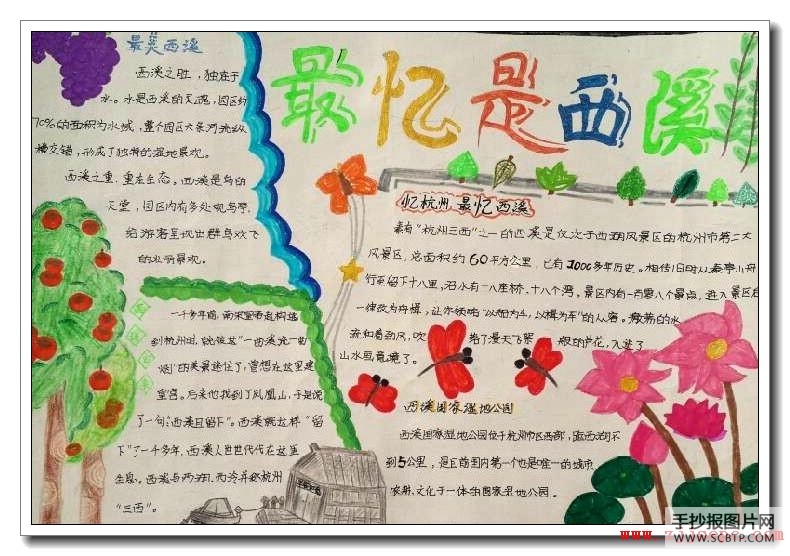 最美西溪
西溪之胜，独在于
水。水是西溪的灵魂，园区约
70%的面积为水域，整个园区六条河流纵
横交错，形成了独特的湿地景观。
西溪之重，重在生态。西溪是鸟的
天堂，园区内有多处观鸟亭，
给游客呈现出群鸟欢飞
的
景观。
最忆是西溪
忆杭州 最忆西溪
素有"杭州三西"之一的西溪是仅次于西湖风景区的杭州市第二大
风景区，总面积约60平方公里，已有1000多年历史。相传旧时从秦亭山舟
行至留下十八里，沿水有一八座桥，十八个湾。景区内有一百零八个景点，进入景区后
一律改为舟楫，让你领略"以船为车，以楫为车"的从容。微荡的水
流和着劲风，吹
给了漫天飞絮
般的芦花，入迷了
山水画意境了。
一千多年前，南宋皇帝赵构逃
到杭州时，
"西溪
烟"的美景迷住了，曾想在这里建
皇宫。后来他找到了凤凰山，于是说
了一句"西溪且留下"。西溪就这样"留
下"了一千多年。西溪人世世代代在这里
生息。西溪与西湖、西泠并称杭州
"三西"。
西溪国家湿地公园
西溪国家湿地公园位于杭州市区西部，距西湖不
到5公里，是目前国内第一个也是唯一的城市、
农耕、文化于一体的国家湿地公园。
手抄报图片网
WWW.SCBTP.COM